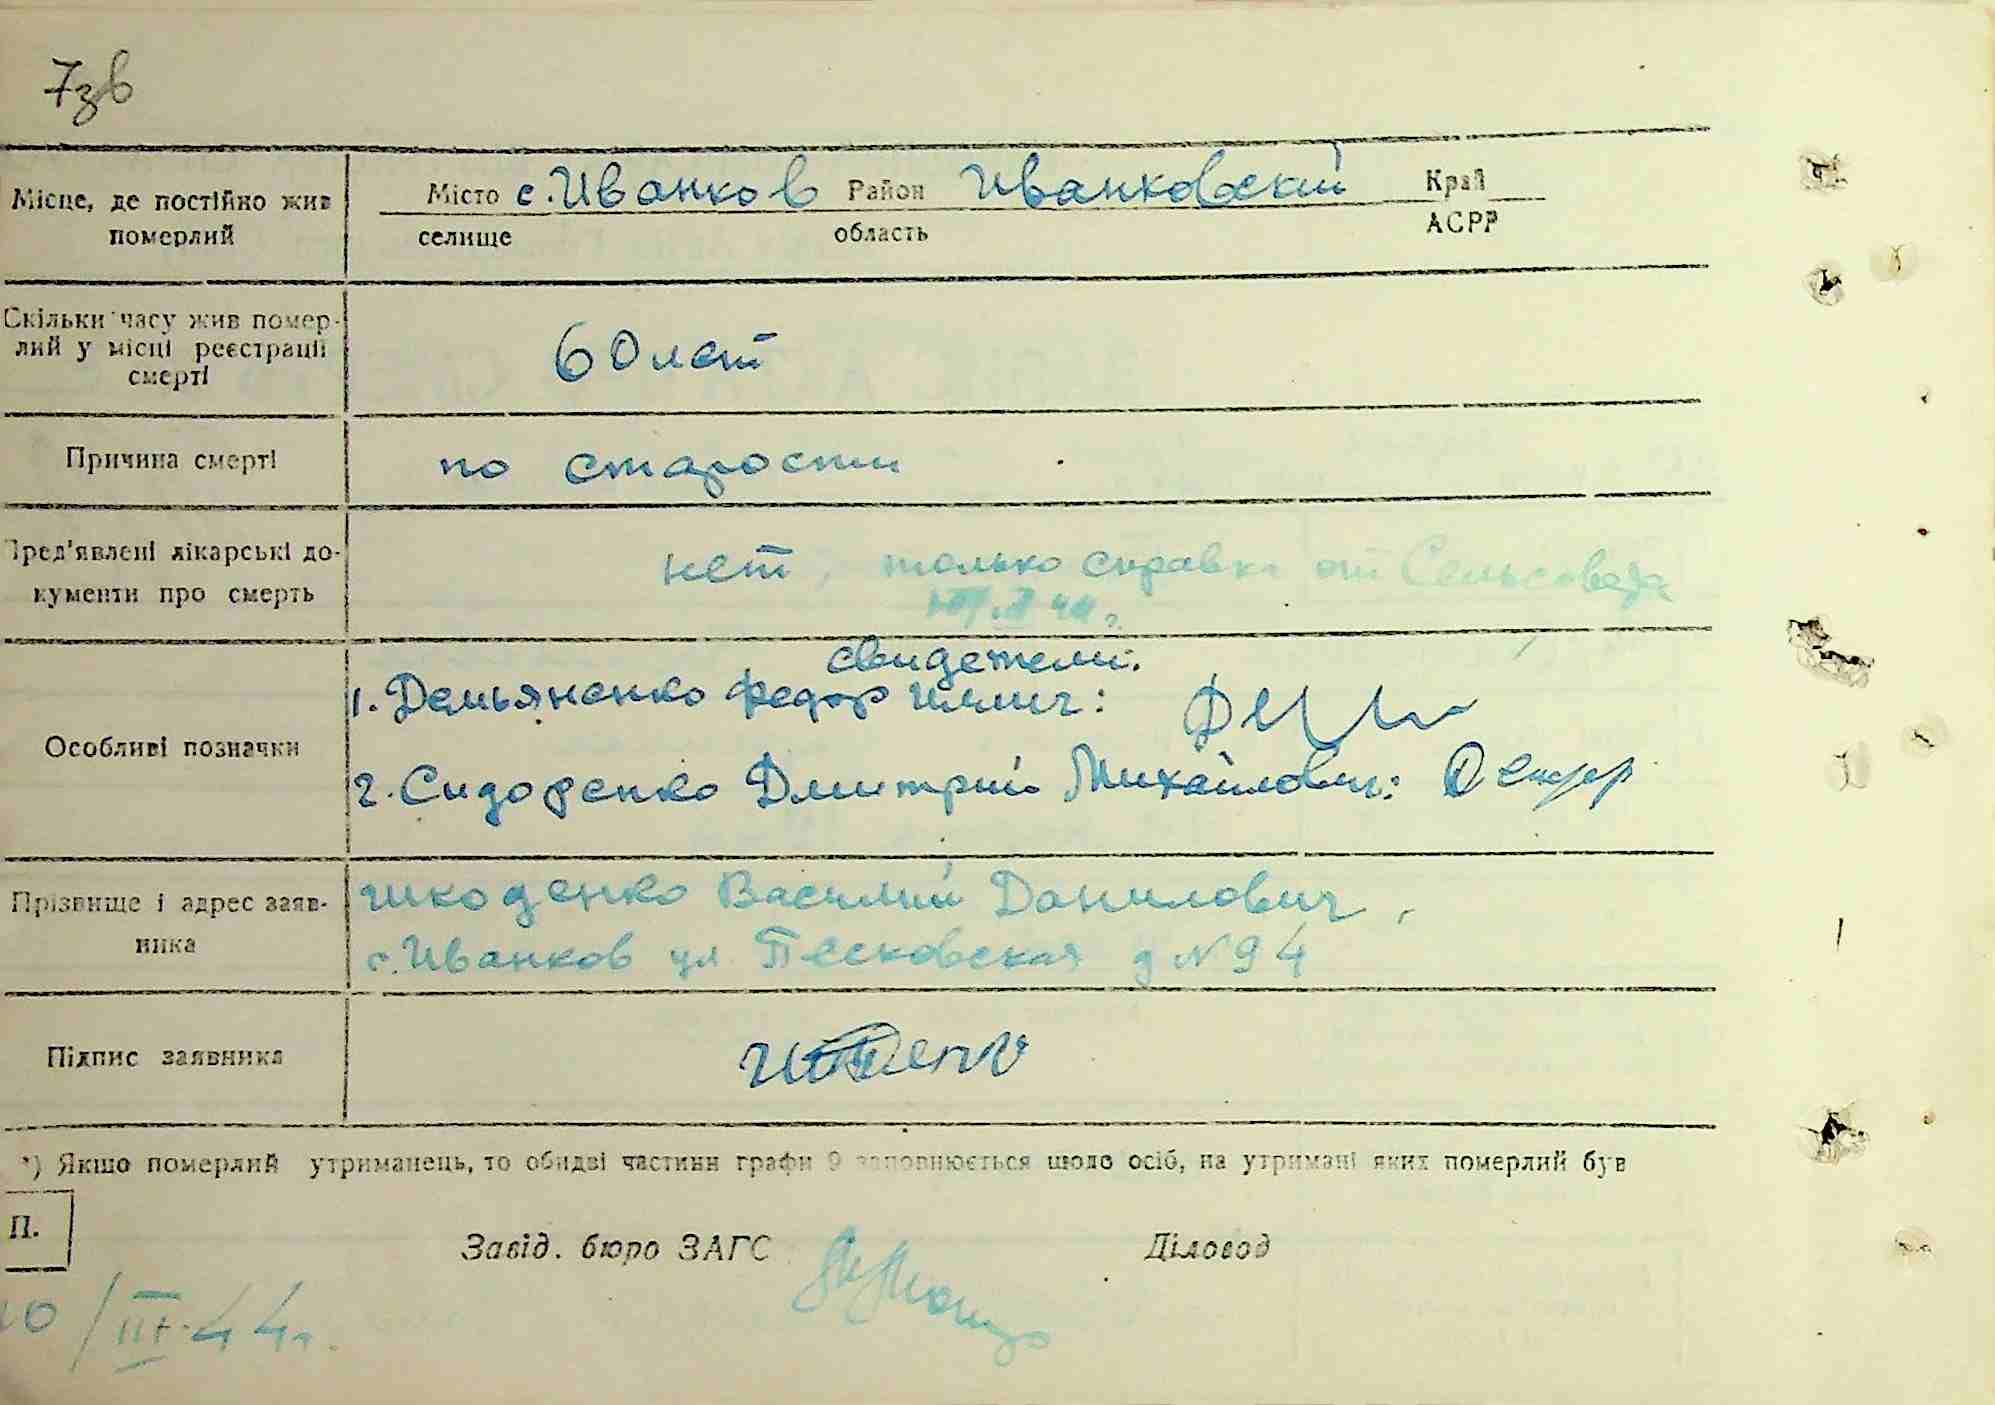 7зв
Місце, де постійно жив померлий
Місто с. Иванков Район Иванковский Край
селище область АСРР
Скільки часу жив помер-
лий у місці реєстрації
смерті
60 лет
Причина смерті
по старости
Пред'явлені лікарські до-
кументи про смерть
нет, только справка от Сельсовета
44 г.
Особливі позначки
свидетели:
1. Демьяненко Федор Иллич:
2. Сидоренко Дмитрий Михайлович:
Прізвище і адрес заяв-
ника
Шкоденко Василий Данилович,
с. Иванков ул Песковская д N 94
Підпис заявника
*) Якщо померлий утриманець, то обидві частини графи 9 заповнюється щодо осіб, на утримані яких померлий був
П.
Завід. бюро ЗАГС Діловод
10/III-44г.